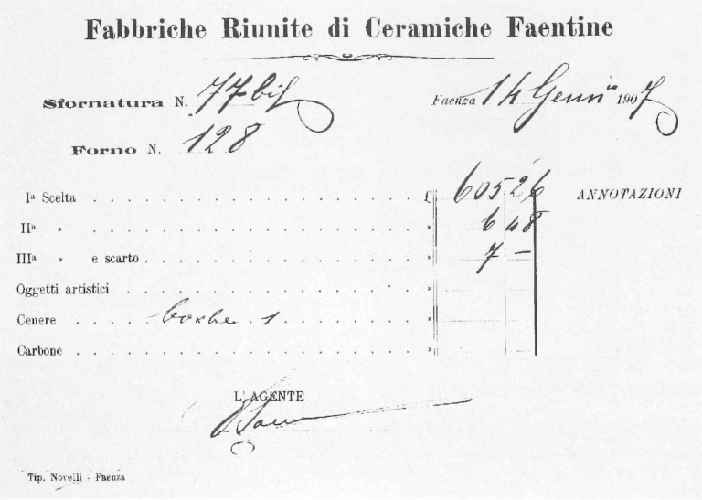 Fabbriche Riunite di Ceramiche Faentine
Sfornatura N. 77 bis Faenza 14 Genn io 1907
Forno N. 128
Iª Scelta . . . . . . . . . . . . . . . £ 605 26 ANNOTAZIONI
IIª " . . . . . . . . . . . . . . . " 6 48
IIIª " e scarto . . . . . . . . . . . . " 7 –
Oggetti artistici . . . . . . . . . . . . . "
Cenere . . . . . 1 . . . . . . . "
Carbone . . . . . . . . . . . . . . . "
L'AGENTE
Tip. Novelli - Faenza